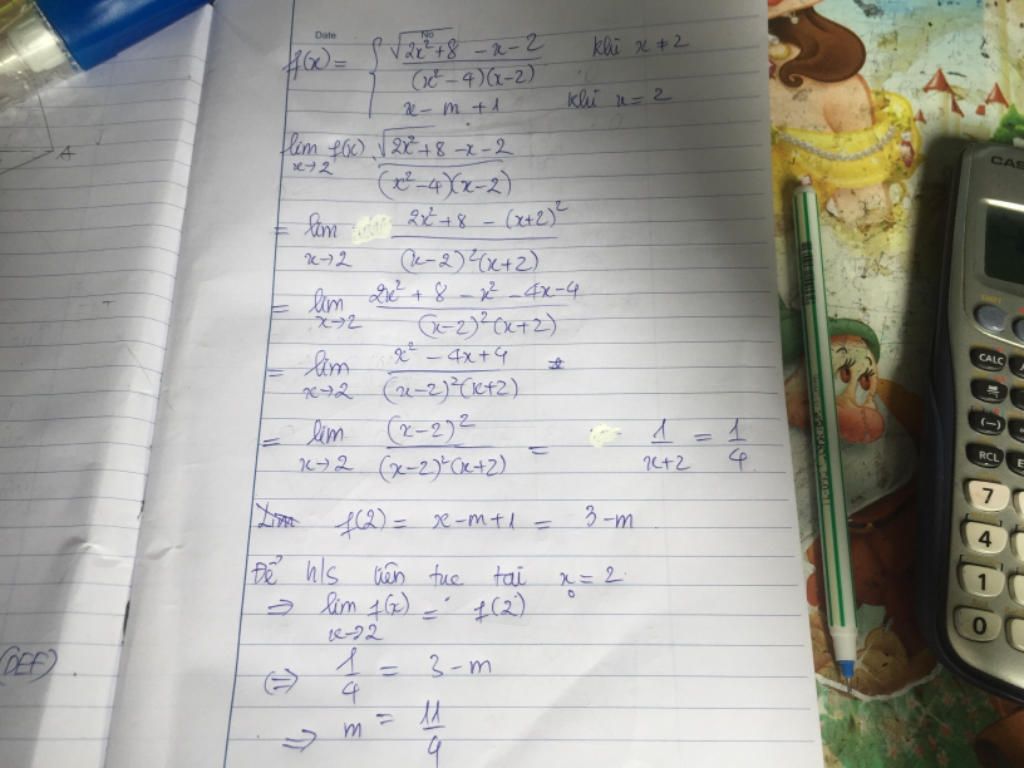 Date No
f(x) = { √(2x²+8) - x - 2 / (x² - 4)(x-2) khi x ≠ 2
x - m + 1 khi x = 2
A
lim x→2 f(x) √(2x²+8) - x - 2 / (x²-4)(x-2)
= lim x→2 2x²+8 - (x+2)² / (x-2)²(x+2)
= lim x→2 2x² + 8 - x² - 4x - 4 / (x-2)²(x+2)
= lim x→2 x² - 4x + 4 / (x-2)²(x+2)
= lim x→2 (x-2)² / (x-2)²(x+2) = 1/x+2 = 1/4
f(2) = x-m+1 = 3-m
Để h/s liên tục tại x₀ = 2
⇒ lim x→2 f(x) = f(2)
⇔ 1/4 = 3-m
⇒ m = 11/4
(DEF)
CAS
SHIFT
CALC
(-)
RCL
7
4
1
0